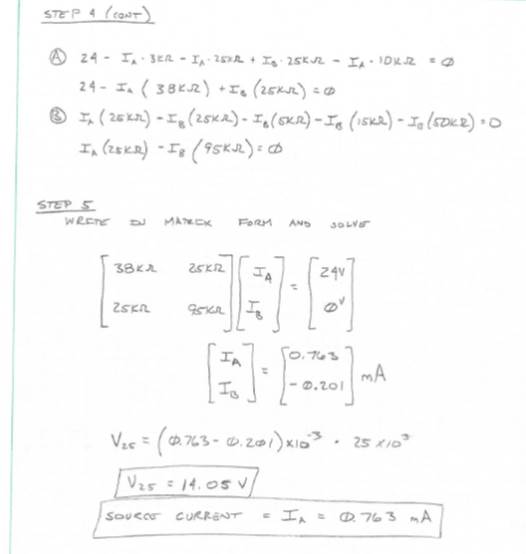 STEP 4 (CONT)
Ⓐ 24 - I_A · 3KΩ - I_A · 25KΩ + I_B · 25KΩ - I_A · 10KΩ = 0
24 - I_A (38KΩ) + I_B (25KΩ) = 0
Ⓑ I_A (25KΩ) - I_B (25KΩ) - I_B (5KΩ) - I_B (15KΩ) - I_B (50KΩ) = 0
I_A (25KΩ) - I_B (95KΩ) = 0
STEP 5
WRITE IN MATRIX FORM AND SOLVE
[38KΩ 25KΩ] [I_A] = [24V]
[25KΩ 95KΩ] [I_B] [0V]
[I_A] = [0.763] mA
[I_B] [-0.201]
V_25 = (0.763 - 0.201) x10^-3 · 25 x10^3
V_25 = 14.05 V
SOURCE CURRENT = I_A = 0.763 mA